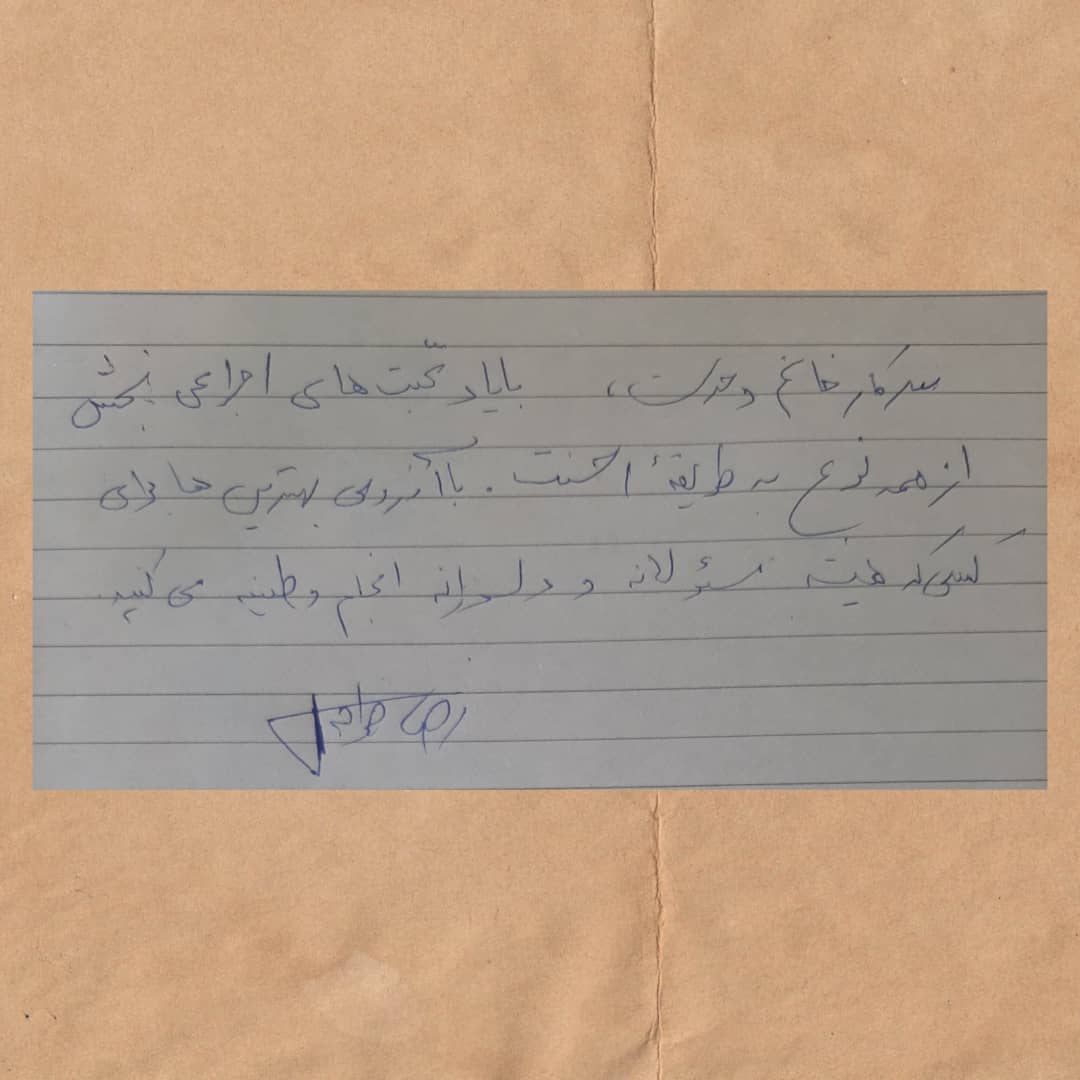 سرکار خانم وحدت، با یاد محبت های اجرایی بخش
از همه نوع به طریقهٔ احسنت. با آرزوی بهترین ها برای
کسی که همیشه مسئولانه و دلسوزانه انجام وظیفه می کنید.